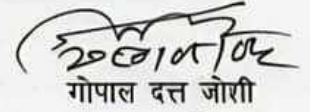 गोपाल दत्त जोशी